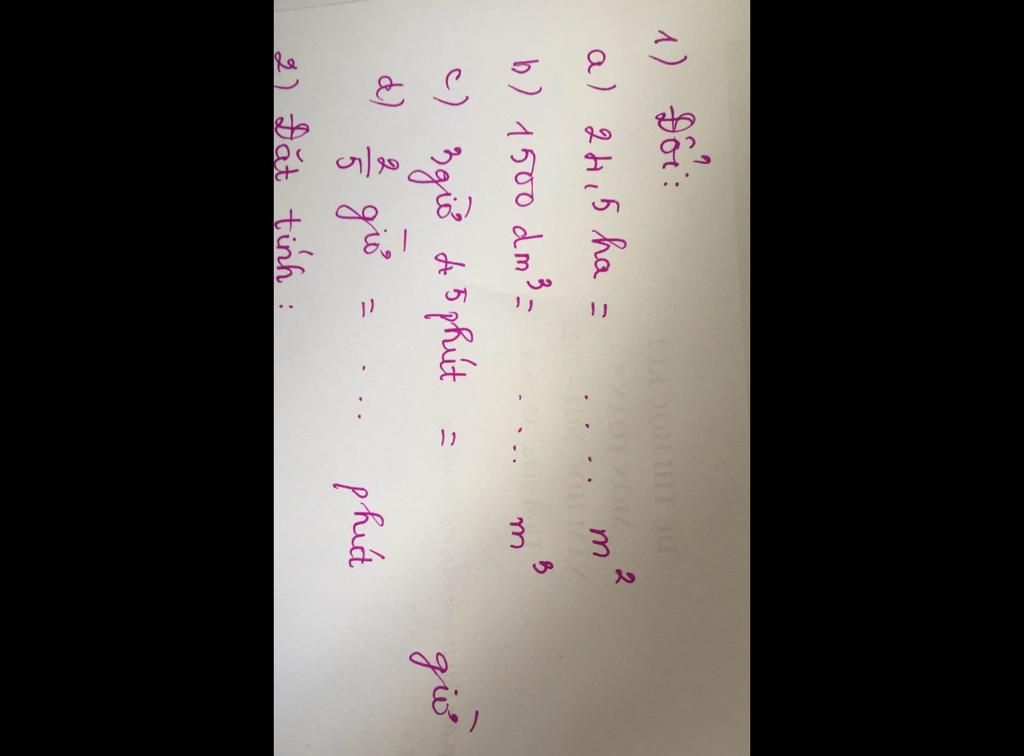 1) Đổi:
a) 24,5 ha = .... m²
b) 1500 dm³ = .... m³
c) 3 giờ 45 phút = giờ
d) 2/5 giờ = .... phút
2) Đặt tính: